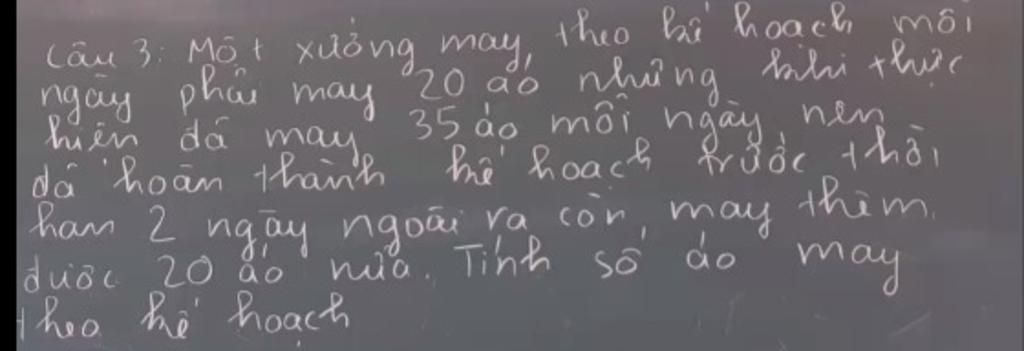 Câu 3: Một xưởng may, theo kế hoạch mỗi
ngày phải may 20 áo nhưng khi thực
hiện đã may 35 áo mỗi ngày nên
đã hoàn thành kế hoạch trước thời
hạn 2 ngày ngoài ra còn may thêm
được 20 áo nữa. Tính số áo may
theo kế hoạch